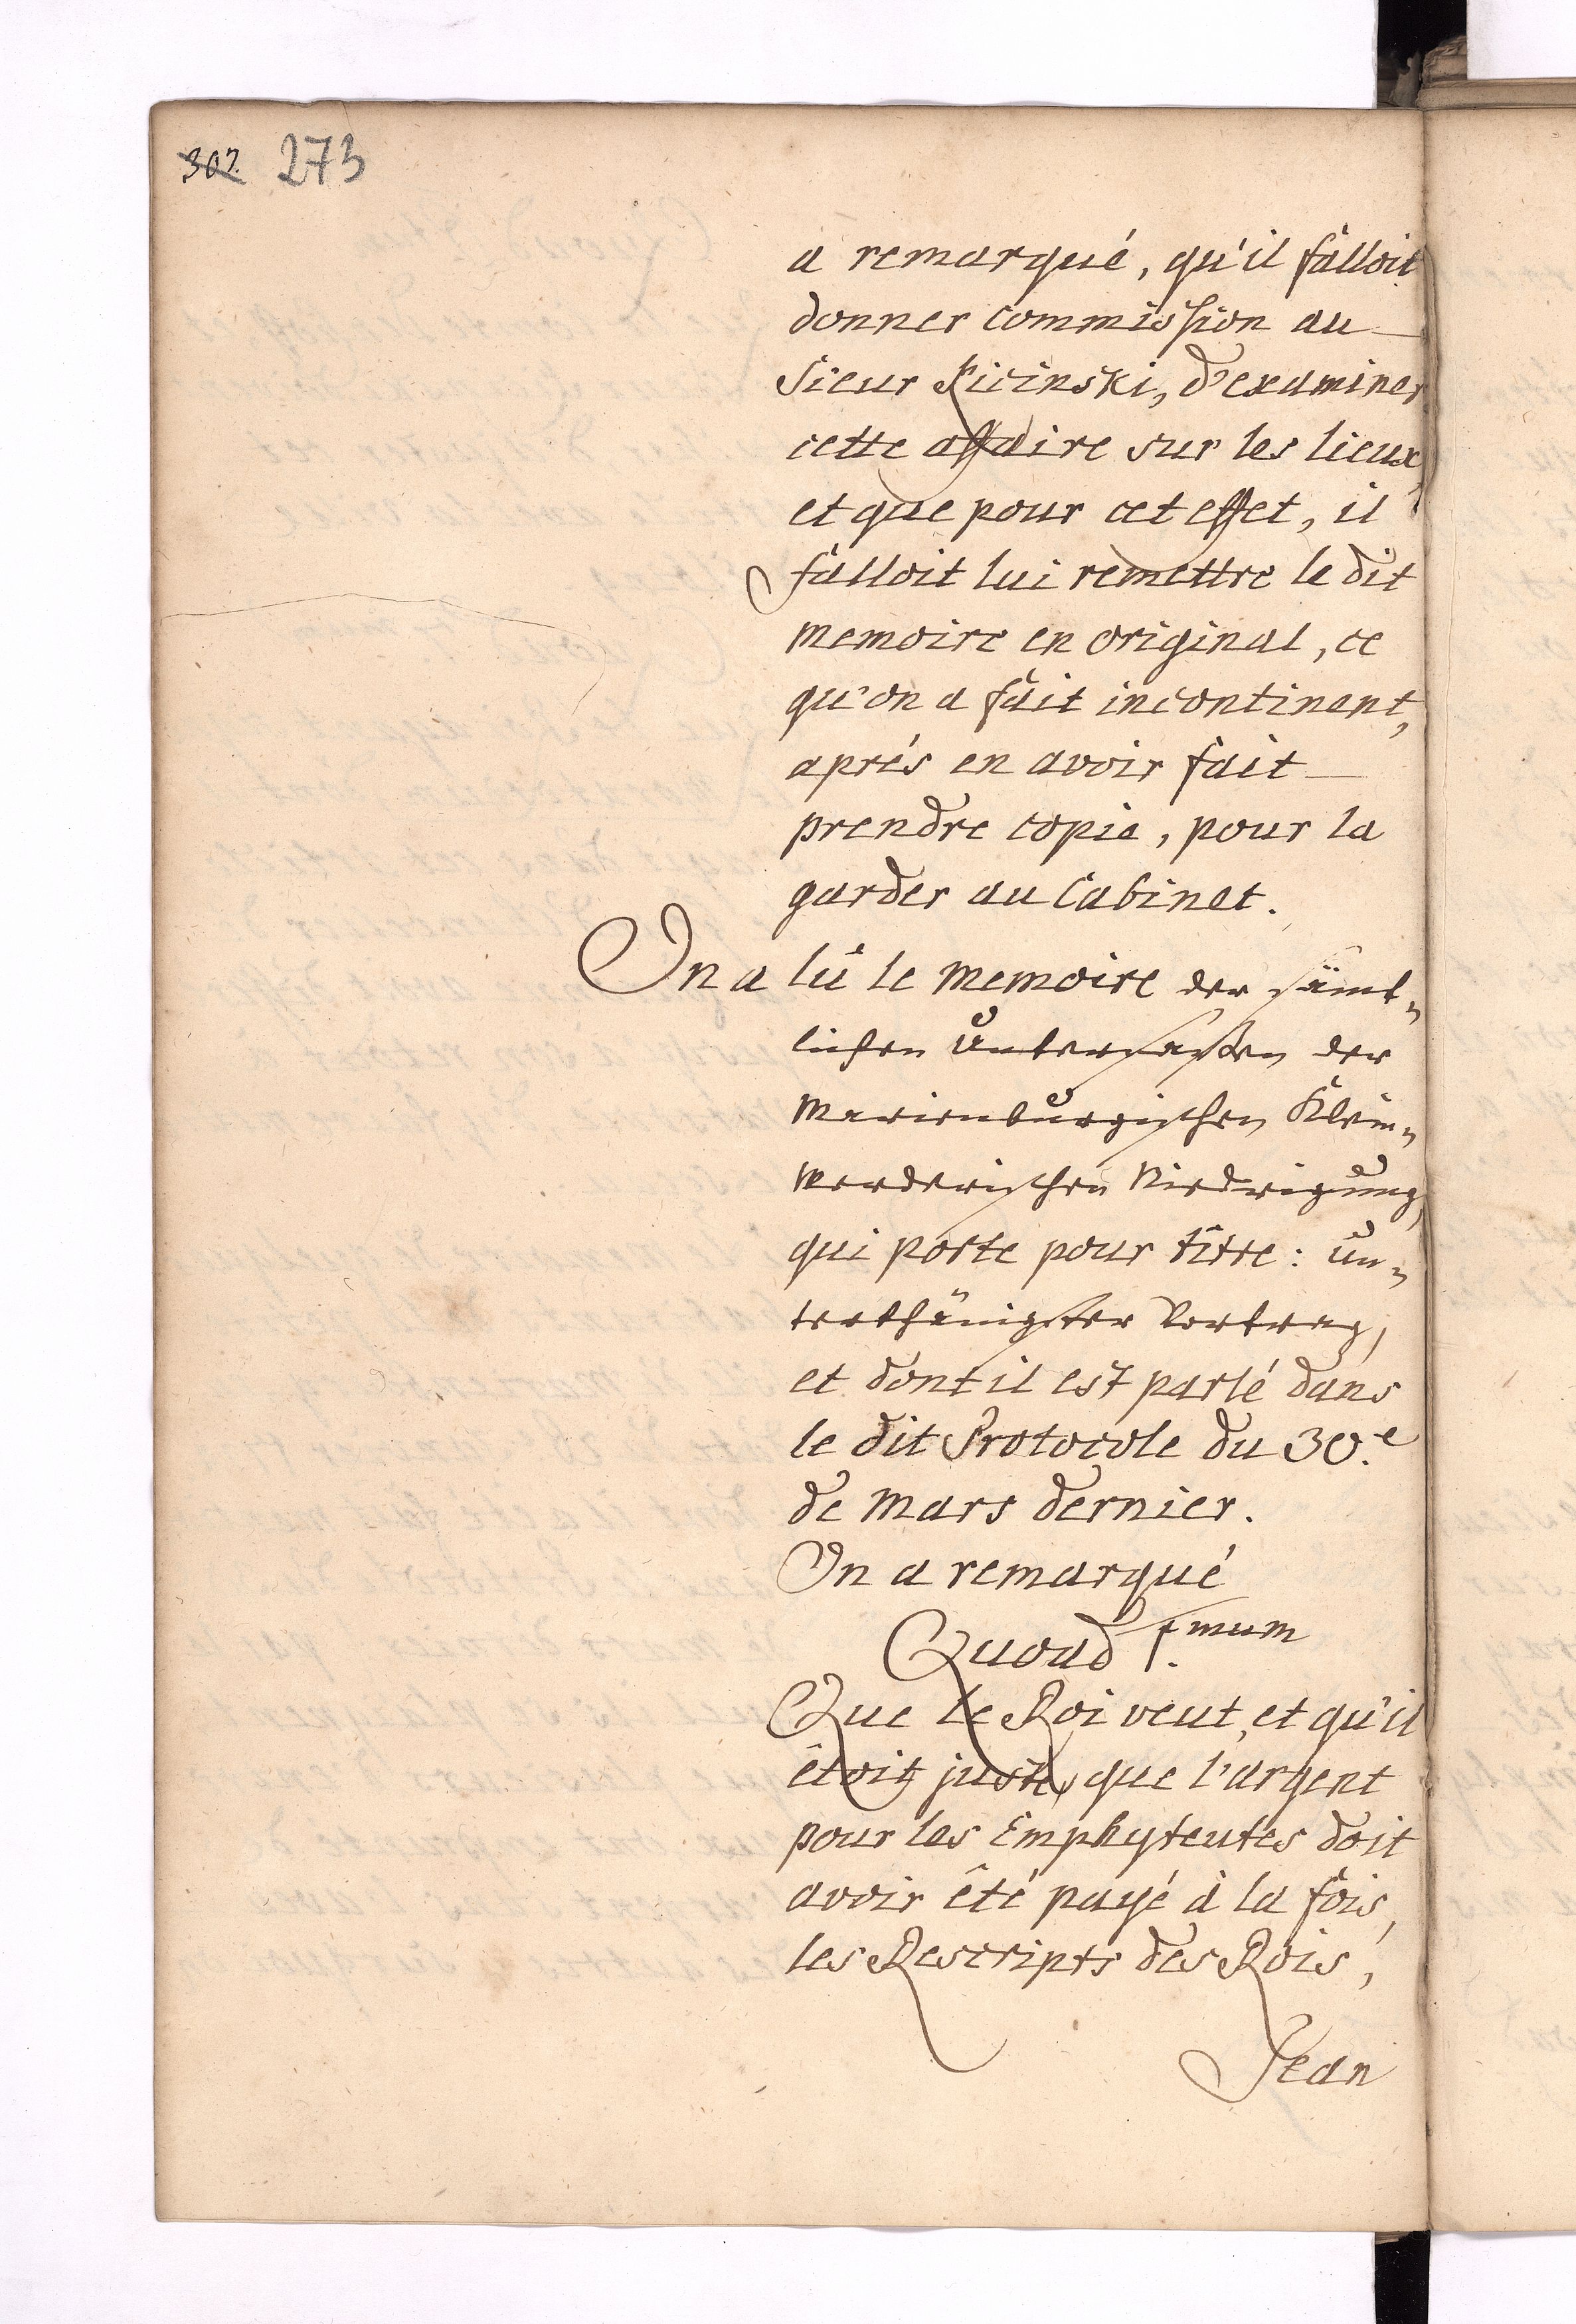 302. 273
a remarqué, qu'il falloit
donner commission au
Sieur Kicinski, d'examiner
cette affaire sur les lieux,
et que pour cet effet, il
falloit lui remettre le dit
memoire en original, ce
qu'on a fait incontinent,
aprés en avoir fait
prendre copie, pour la
garder au Cabinet.
On a lû le memoire der sämt-
lichen Untersaßen der
Marienburgischen Klein-
Werderischen Niedrigung,
qui porte pour titre: Un-
terthänigster Vortrag,
et dont il est parlé dans
le dit Protocole du 30.e
de Mars dernier.
On a remarqué
Quoad 1.mum
Que le Roi veut, et qu'il
étoit juste, que l'argent
pour les Emphyteutes doit
avoir êté payé à la fois,
les Rescripts des Rois,
Jean